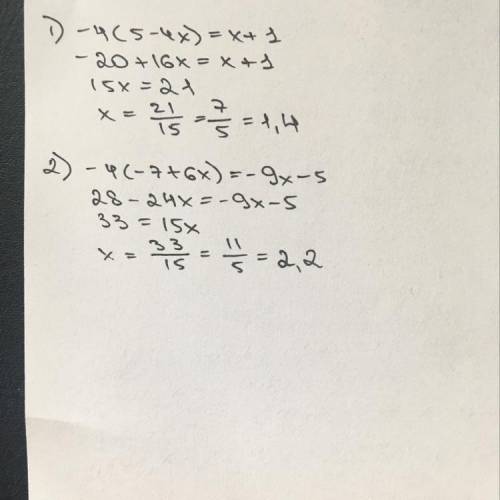 1) -4(5-4x)=x+1
-20+16x=x+1
15x=21
x = 21/15 = 7/5 = 1,4
2) -4(-7+6x)=-9x-5
28-24x=-9x-5
33=15x
x = 33/15 = 11/5 = 2,2